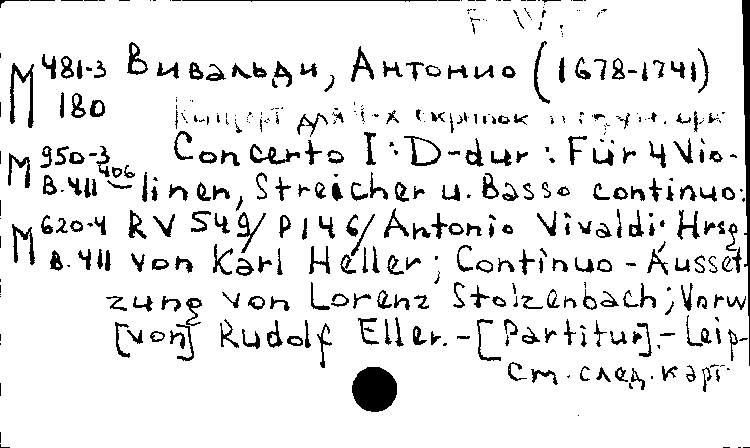 M 481-3 Вивальди, Антонио (1678-1741)
180
Концерт для 4-х скрипок и струн. орк
M 950-3 Concerto I : D-dur : Für 4 Vio-
В.411 406 linen, Streicher u. Basso continuo:
M 620-4 RV 549/P146/Antonio Vivaldi; Hrsg.
В.411 von Karl Heller; Continuo-Ausset-
zung von Lorenz Stolzenbach; Vorw
[von] Rudolf Eller.-[Partitur].-Leip-
см. след. карт